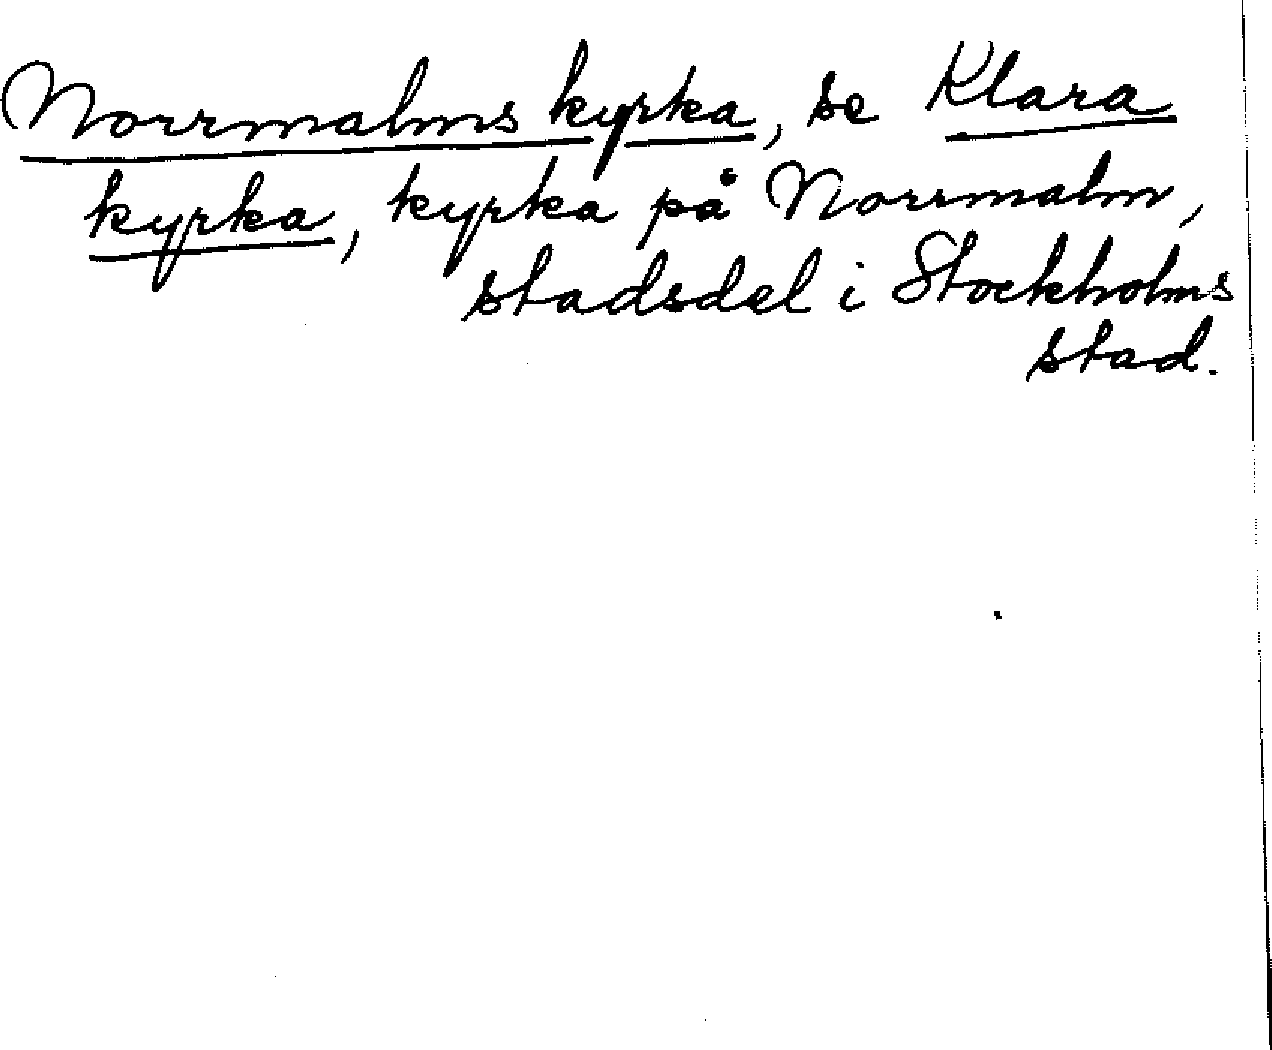 Norrmalms kyrka, se Klara
kyrka, kyrka på Norrmalm,
stadsdel i Stockholms
stad.